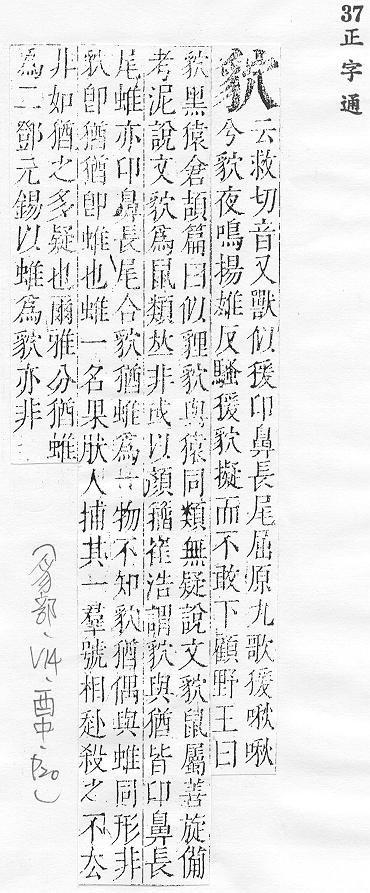 37正字通
貁
云救切音又獸似猨卬鼻長尾屈原九歌猨啾啾
兮貁夜鳴揚雄反騷猨貁擬而不敢下顧野王曰
貁黑猿倉頡篇曰似貍貁與猿同類無疑說文貁鼠屬善旋備
考泥說文貁爲鼠類𠀤非或以顏稱崔浩謂貁與猶皆卬鼻長
尾蜼亦卬鼻長尾合貁猶蜼爲一物不知貁猶偶與蜼同形非
貁卽猶猶卽蜼也蜼一名果肰人捕其一羣號相赴殺之不厺
非如猶之多疑也爾雅分猶蜼
爲二鄧元錫以蜼爲貁亦非
(豸部·V14·酉中·P20)